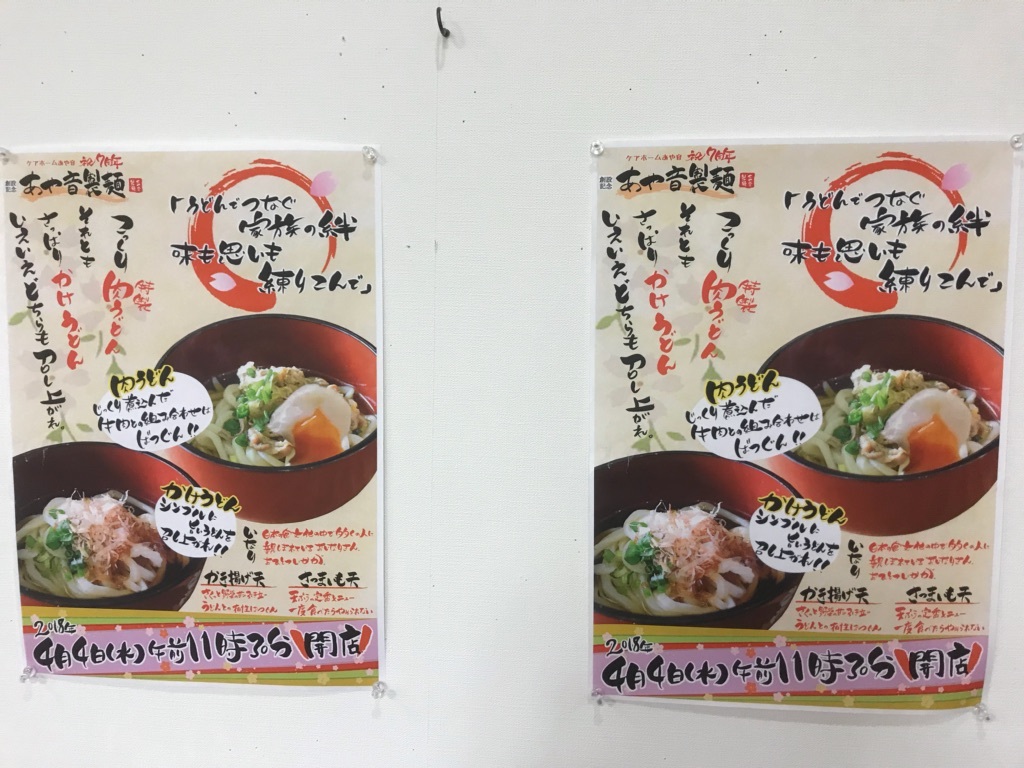 ケアホームあや音 祝7周年
創設記念 あや音製麺
「うどんでつなぐ
家族の絆
味も思いも
練りこんで」
こってり 特製 肉うどん
それとも
さっぱり かけうどん
いえいえ、どちらも召し上がれ。
肉うどん
じっくり煮込んだ
牛肉との組み合わせは
ばつぐん!!
かけうどん
シンプルに
旨いうどんを
召し上がれ!!
かき揚げ天
さつまいも天
2018年
4月4日(水)午前11時30分 開店
ケアホームあや音 祝7周年
創設記念 あや音製麺
「うどんでつなぐ
家族の絆
味も思いも
練りこんで」
こってり 特製 肉うどん
それとも
さっぱり かけうどん
いえいえ、どちらも召し上がれ。
肉うどん
じっくり煮込んだ
牛肉との組み合わせは
ばつぐん!!
かけうどん
シンプルに
旨いうどんを
召し上がれ!!
かき揚げ天
さつまいも天
2018年
4月4日(水)午前11時30分 開店